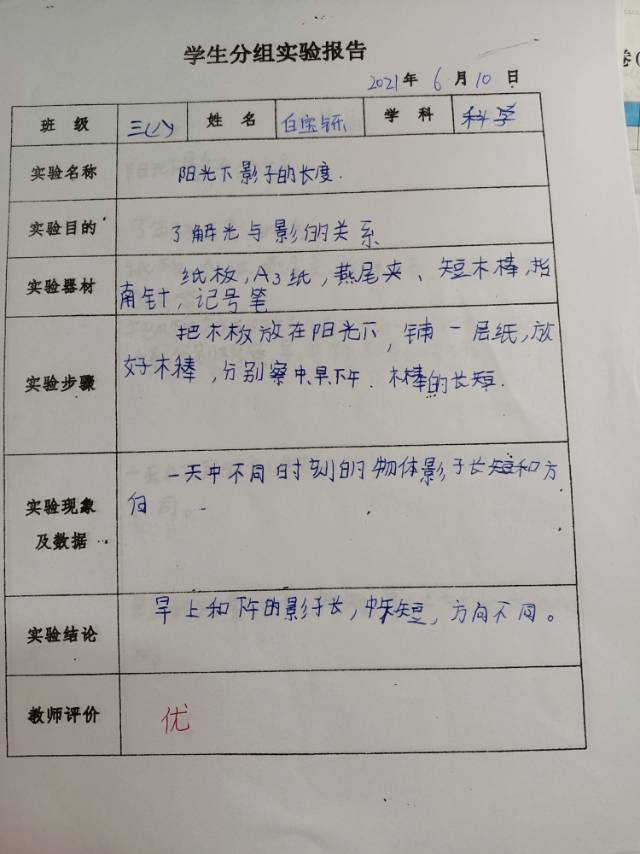 学生分组实验报告
2021年 6月10日
班 级 三(1) 姓 名 白宝钰 学 科 科学
实验名称 阳光下影子的长度.
实验目的 了解光与影的关系
实验器材 纸板,A3纸,燕尾夹、短木棒,指
南针,记号笔
实验步骤 把木板放在阳光下,铺一层纸,放
好木棒,分别察中.早.下午.木棒的长短.
实验现象及数据 一天中不同时刻的物体影子长短和方
向
实验结论 早上和下午的影子长,中午短,方向不同。
教师评价 优